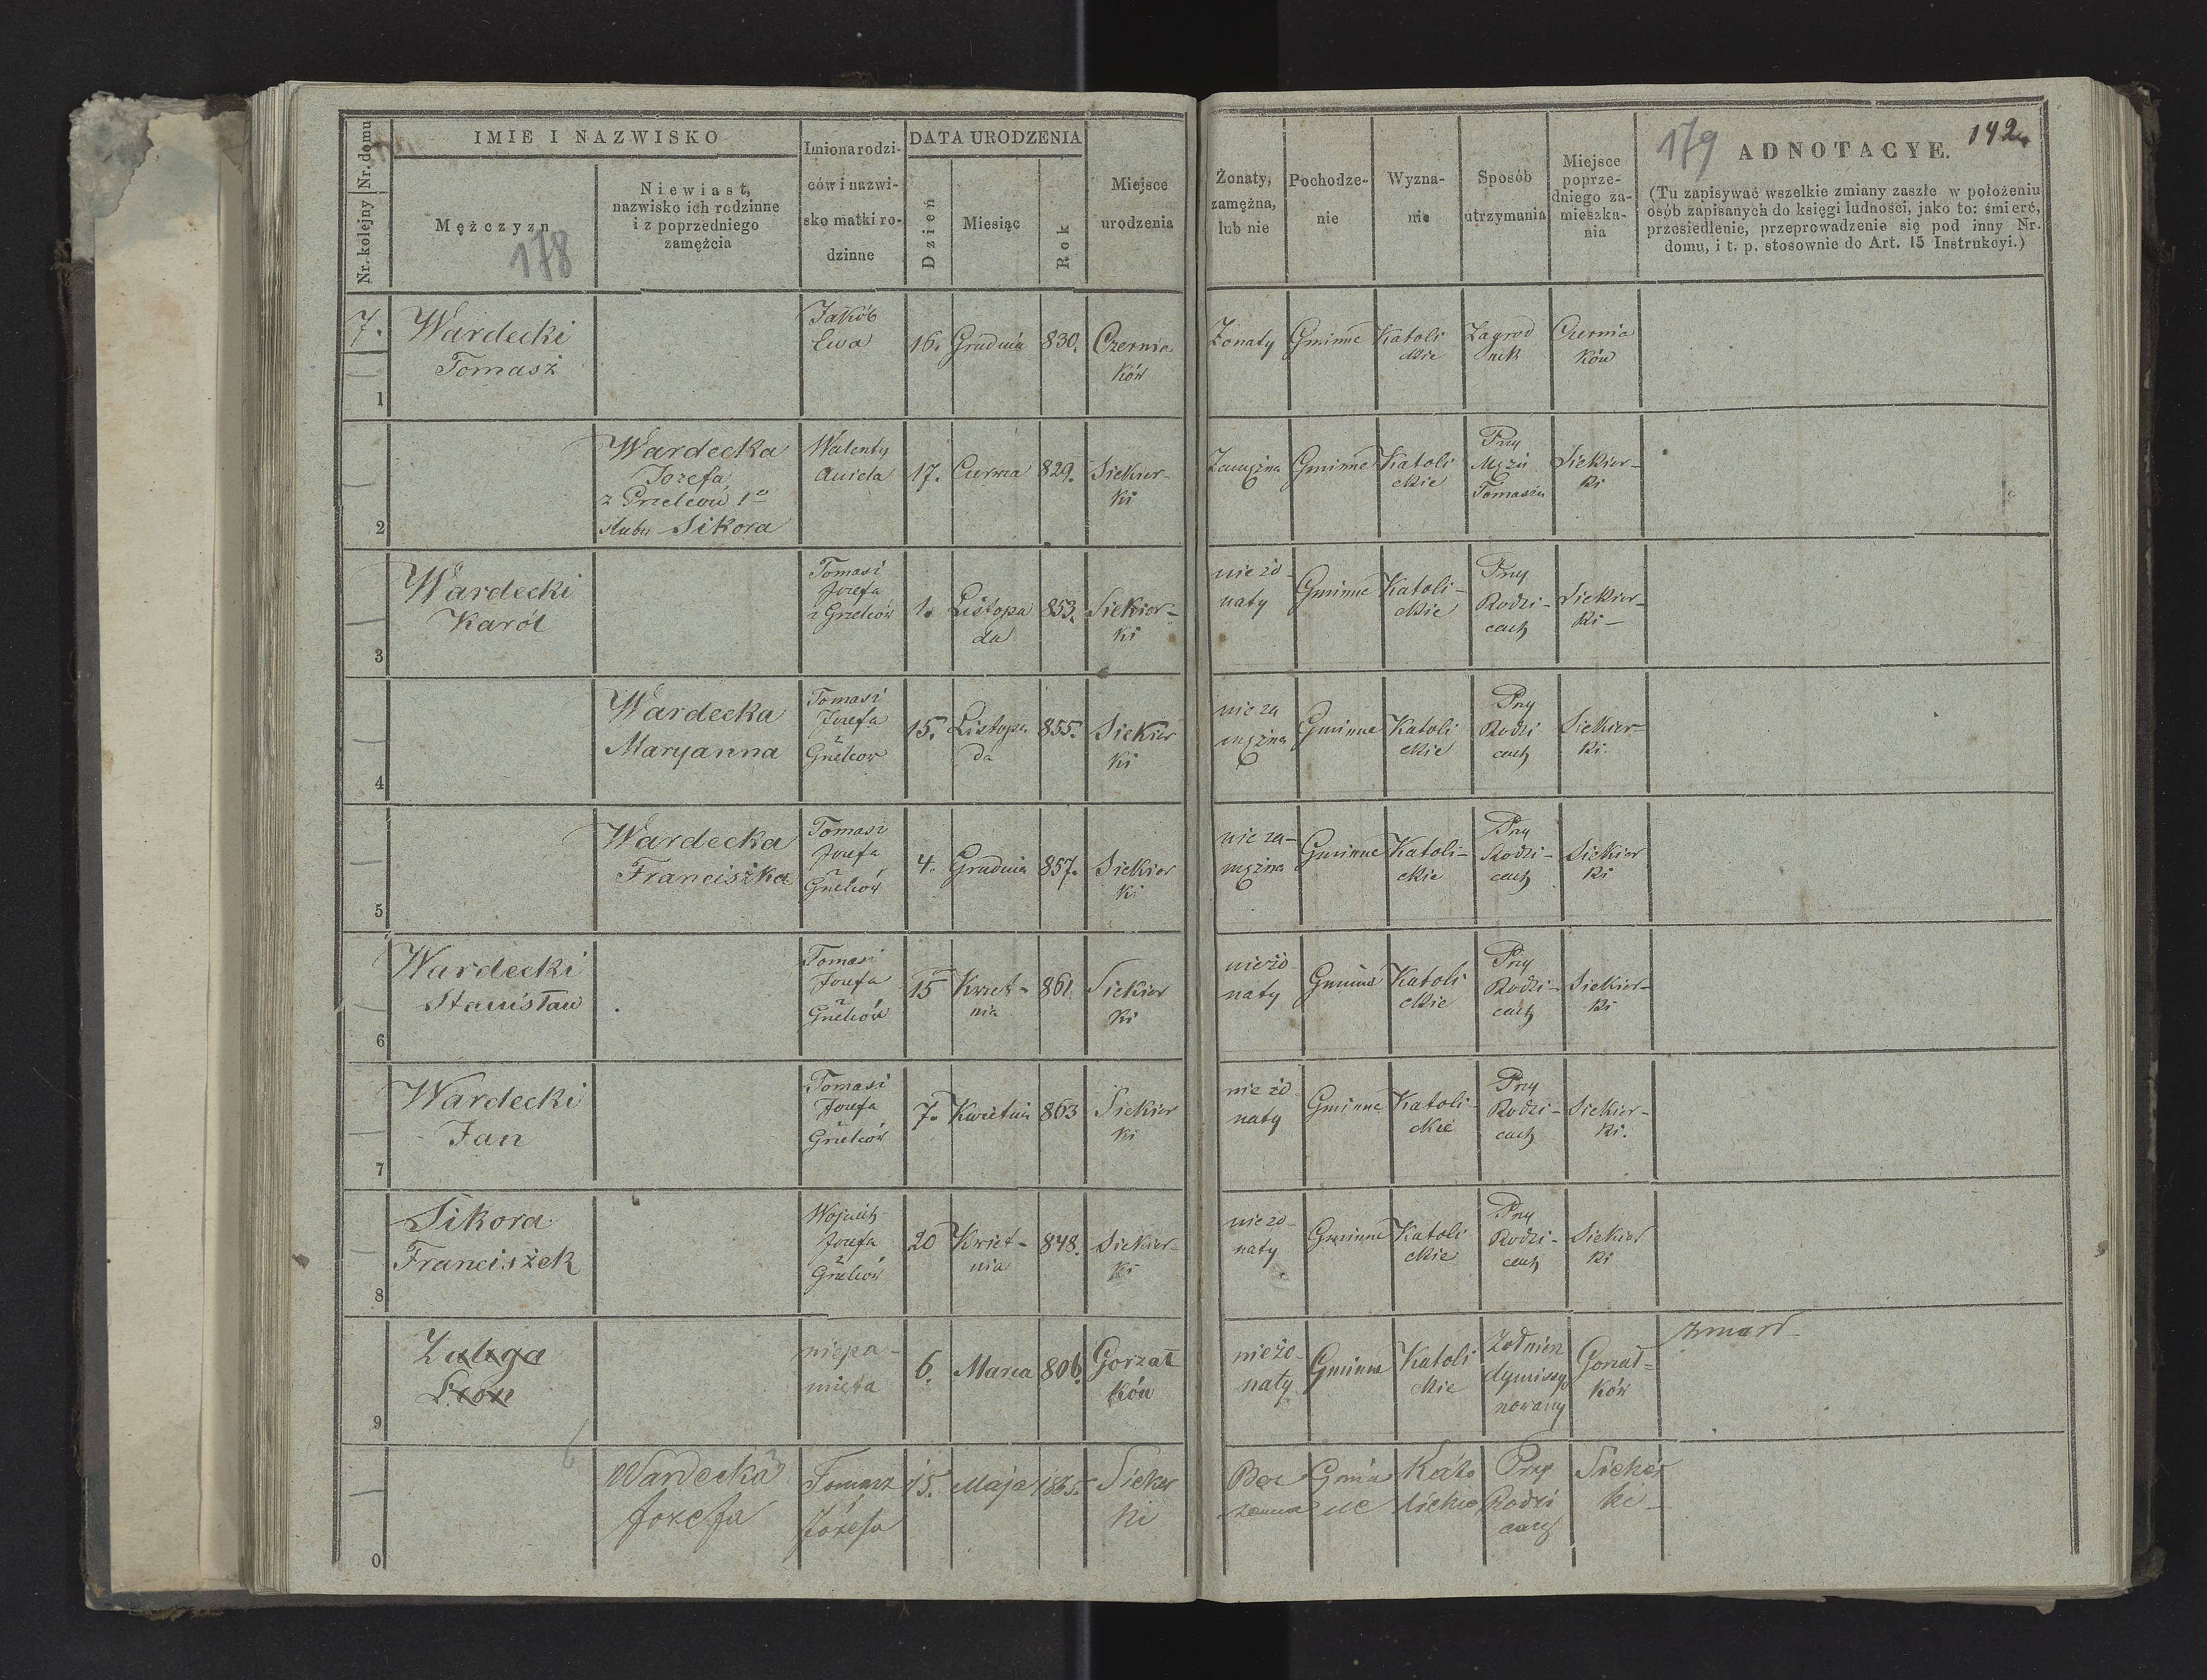 Nr. domu
Nr. kolejny
IMIE I NAZWISKO
Mężczyzn
178
Niewiast,
nazwisko ich rodzinne
i z poprzedniego
zamężcia
Imiona rodzi-
ców i nazwi-
sko matki ro-
dzinne
DATA URODZENIA
Dzień
Miesiąc
Rok
Miejsce
urodzenia
Żonaty,
zamężna,
lub nie
Pochodze-
nie
Wyzna-
nie
Sposób
utrzymania
Miejsce
poprze-
dniego za-
mieszka-
nia
179
ADNOTACYE.
142
(Tu zapisywać wszelkie zmiany zaszłe w położeniu
osób zapisanych do księgi ludności, jako to: śmierć,
przesiedlenie, przeprowadzenie się pod inny Nr.
domu, i t. p. stosownie do Art. 15 Instrukcyi.)
7.
1
Wardecki
Tomasz
Jakób
Ewa
16. Grudnia 830.
Czernia
ków
Żonaty
Gminne
Katoli
ckie
Zagrod
nik
Czernia
ków
2
Wardecka
Jozefa
z Grzelców 1o
ślubu Sikora
Walenty
Aniela
17. Czerwca 829.
Siekier-
ki
Zamężna
Gminne
Katoli
ckie
Przy
Mężu
Tomaszu
Siekier-
ki
3
Wardecki
Karól
Tomasz
Jozefa
z Grzelców
1. Listopa
da
853.
Siekier-
ki
nie żo-
naty
Gminne
Katoli-
ckie
Przy
Rodzi-
cach
Siekier-
ki-
4
Wardecka
Maryanna
Tomasz
Jozefa
z
Grzelcow
15. Listopa
da
855.
Siekier
ki
nie za
mężna
Gminne
Katoli
ckie
Przy
Rodzi
cach
Siekier-
ki.
5
Wardecka
Franciszka
Tomasz
Jozefa
z
Grzelców
4. Grudnia 857.
Siekier
ki
nie za-
mężna
Gminne
Katoli-
ckie
Przy
Rodzi-
cach
Siekier
ki
6
Wardecki
Stanisław
Tomasz
Jozefa
z
Grzelców
15 Kwiet-
nia
861
Siekier
ki
nieżo
naty
Gminne
Katoli
ckie
Przy
Rodzi-
cach
Siekier-
ki
7
Wardecki
Jan
Tomasz
Jozefa
z
Grzelców
7. Kwietnia 863
Siekier
ki
nie żo
naty
Gminne
Katoli-
ckie
Przy
Rodzi-
cach
Siekier-
ki.
8
Sikora
Franciszek
Wojciech
Jozefa
z
Grzelców
20 Kwiet-
nia
848.
Siekier-
ki
nie żo-
naty
Gminne
Katoli
ckie
Przy
Rodzi-
cach
Siekier
ki
9
Leon
niepa-
mięta
6. Marca 806.
Gorzał
ków
nieżo-
naty
Gminne
Katoli
ckie
Żołnierz
dymissyo
nowany
Gorzał=
ków
zmarł
0
Wardecka
Jozefa
Tomasz
Józefa
15. Maja 1865.
Siekier
ki
Gmin
ne
Kato
lickie
Przy
Rodzi
cach
Siekier
ki-